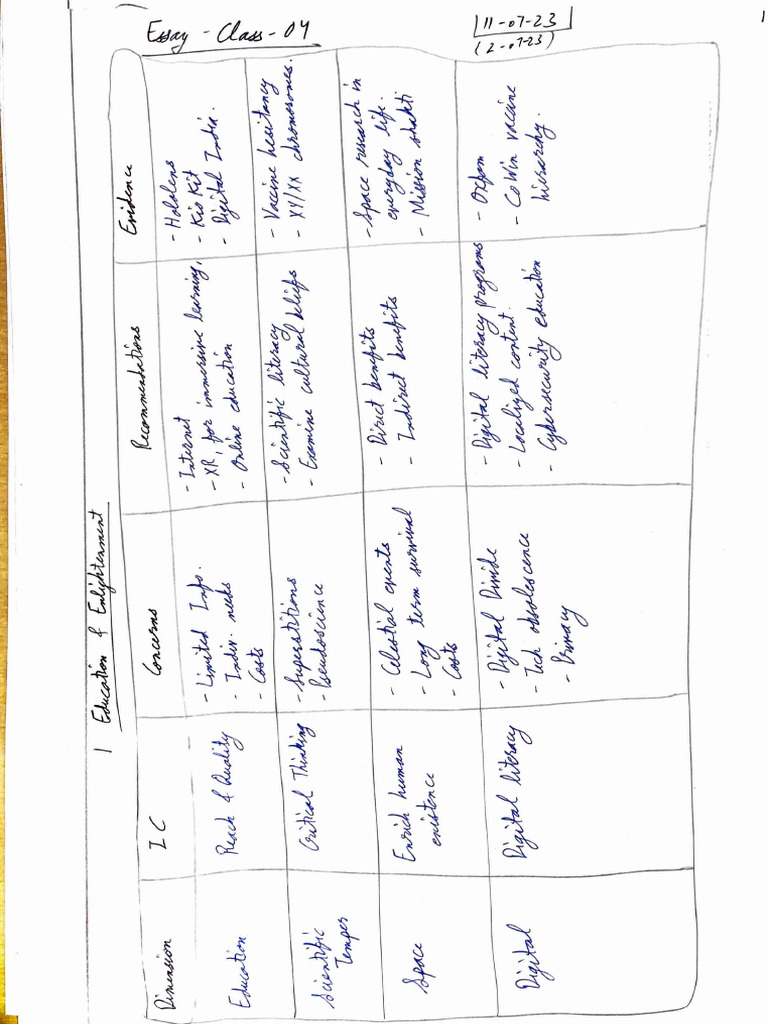 Essay - Class - 04
11-07-23
(2-07-23)
1
1 Education & Enlightenment
Dimension IC Concerns Recommendations Evidence
Education
Reach & Quality
- Limited Info.
- Indiv. needs
- Costs
- Internet
- XR, for immersive learning,
- Online education
- Hololens
- Kio Kit
- Digital India.
Scientific
Temper
Critical Thinking
- Superstitions
- Pseudoscience
- Scientific literacy
- Examine cultural beliefs
- Vaccine hesitancy
- XY/XX chromosomes.
Space
Enrich human
existence
- Celestial events
- Long term survival
- Costs
- Direct benefits
- Indirect benefits
- Space research in
everyday life.
- Mission Shakti
Digital
Digital literacy
- Digital Divide
- Tech obsolescence
- Privacy
- Digital literacy programs
- Localized content.
- Cybersecurity education
- Oxfam
- CoWin vaccine
hierarchy.